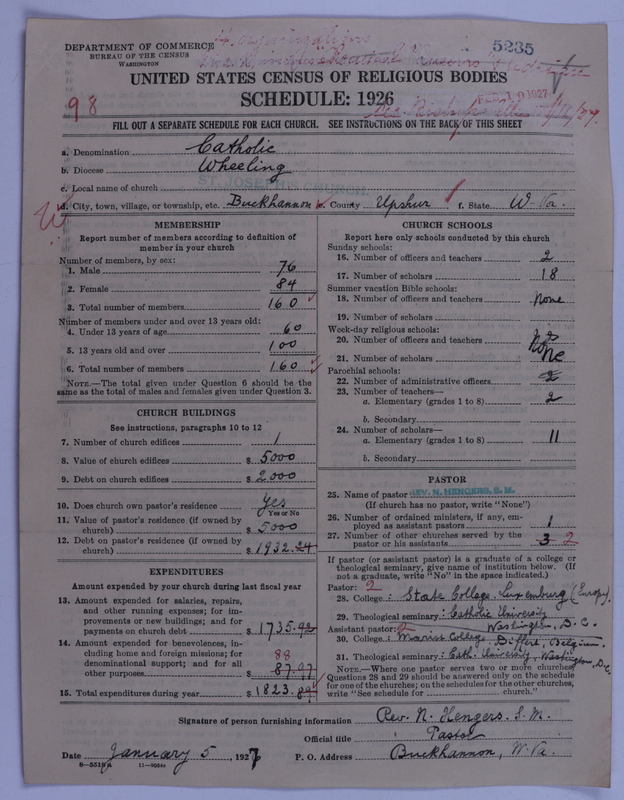 DEPARTMENT OF COMMERCE
BUREAU OF THE CENSUS
WASHINGTON
5235
UNITED STATES CENSUS OF RELIGIOUS BODIES
SCHEDULE: 1926
98
FILL OUT A SEPARATE SCHEDULE FOR EACH CHURCH. SEE INSTRUCTIONS ON THE BACK OF THIS SHEET
a. Denomination Catholic
b. Diocese Wheeling
c. Local name of church ST. JOSEPH'S CHURCH.
d. City, town, village, or township, etc. Buckhannon e. County Upshur f. State W. Va.
MEMBERSHIP
Report number of members according to definition of
member in your church
Number of members, by sex:
1. Male 76
2. Female 84
3. Total number of members 160
Number of members under and over 13 years old:
4. Under 13 years of age 60
5. 13 years old and over 100
6. Total number of members 160
NOTE.—The total given under Question 6 should be the
same as the total of males and females given under Question 3.
CHURCH BUILDINGS
See instructions, paragraphs 10 to 12
7. Number of church edifices 1
8. Value of church edifices $ 5000
9. Debt on church edifices $ 2000
10. Does church own pastor's residence Yes
Yes or No
11. Value of pastor's residence (if owned by
church) $ 5000
12. Debt on pastor's residence (if owned by
church) $ 1932.24
EXPENDITURES
Amount expended by your church during last fiscal year
13. Amount expended for salaries, repairs,
and other running expenses; for im-
provements or new buildings; and for
payments on church debt $ 1735.92
14. Amount expended for benevolences, in-
cluding home and foreign missions; for
denominational support; and for all 88
other purposes $ 87.97
15. Total expenditures during year $ 1823.89
CHURCH SCHOOLS
Report here only schools conducted by this church
Sunday schools:
16. Number of officers and teachers 2
17. Number of scholars 18
Summer vacation Bible schools:
18. Number of officers and teachers None
19. Number of scholars
Week-day religious schools:
20. Number of officers and teachers
21. Number of scholars None
Parochial schools:
22. Number of administrative officers 2
23. Number of teachers—
a. Elementary (grades 1 to 8) 2
b. Secondary
24. Number of scholars—
a. Elementary (grades 1 to 8) 11
b. Secondary
PASTOR
25. Name of pastor REV. N. HENGERS, S. M.
(If church has no pastor, write "None")
26. Number of ordained ministers, if any, em-
ployed as assistant pastors 1
27. Number of other churches served by the
pastor or his assistants 3 2
If pastor (or assistant pastor) is a graduate of a college or
theological seminary, give name of institution below. (If
not a graduate, write "No" in the space indicated.)
Pastor: 2
28. College: State College, Luxemburg (Europe).
29. Theological seminary: Catholic University
Assistant pastor: Washington, D. C.
30. College: Marist College, Differt, Belgium.
31. Theological seminary: Cath. University, Washington, D.C.
NOTE.—Where one pastor serves two or more churches,
Questions 28 and 29 should be answered only on the schedule
for one of the churches; on the schedules for the other churches,
write "See schedule for church."
Signature of person furnishing information Rev. N. Hengers. S. M.
Official title Pastor
Date January 5, 1927 P. O. Address Buckhannon, W. Va.